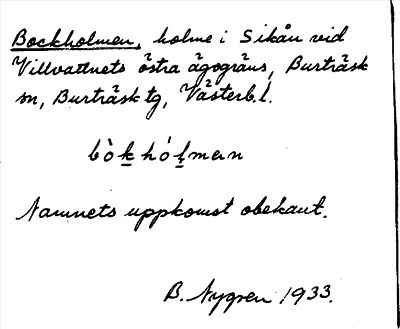 Bockholmen, holme i Sikån vid
Villvattnets östra ägogräns, Burträsk
sn, Burträsk tg, Västerb. l.
bòkhólman
Namnets uppkomst obekant.
B. Nygren 1933.